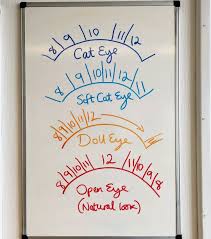 8 9 10 11 12
Cat Eye
8 9 10 11 12 11
Soft Cat Eye
8 9 10 11 12 11
Doll Eye
8 9 10 11 12 11 10 9 8
Open Eye
(Natural Look)